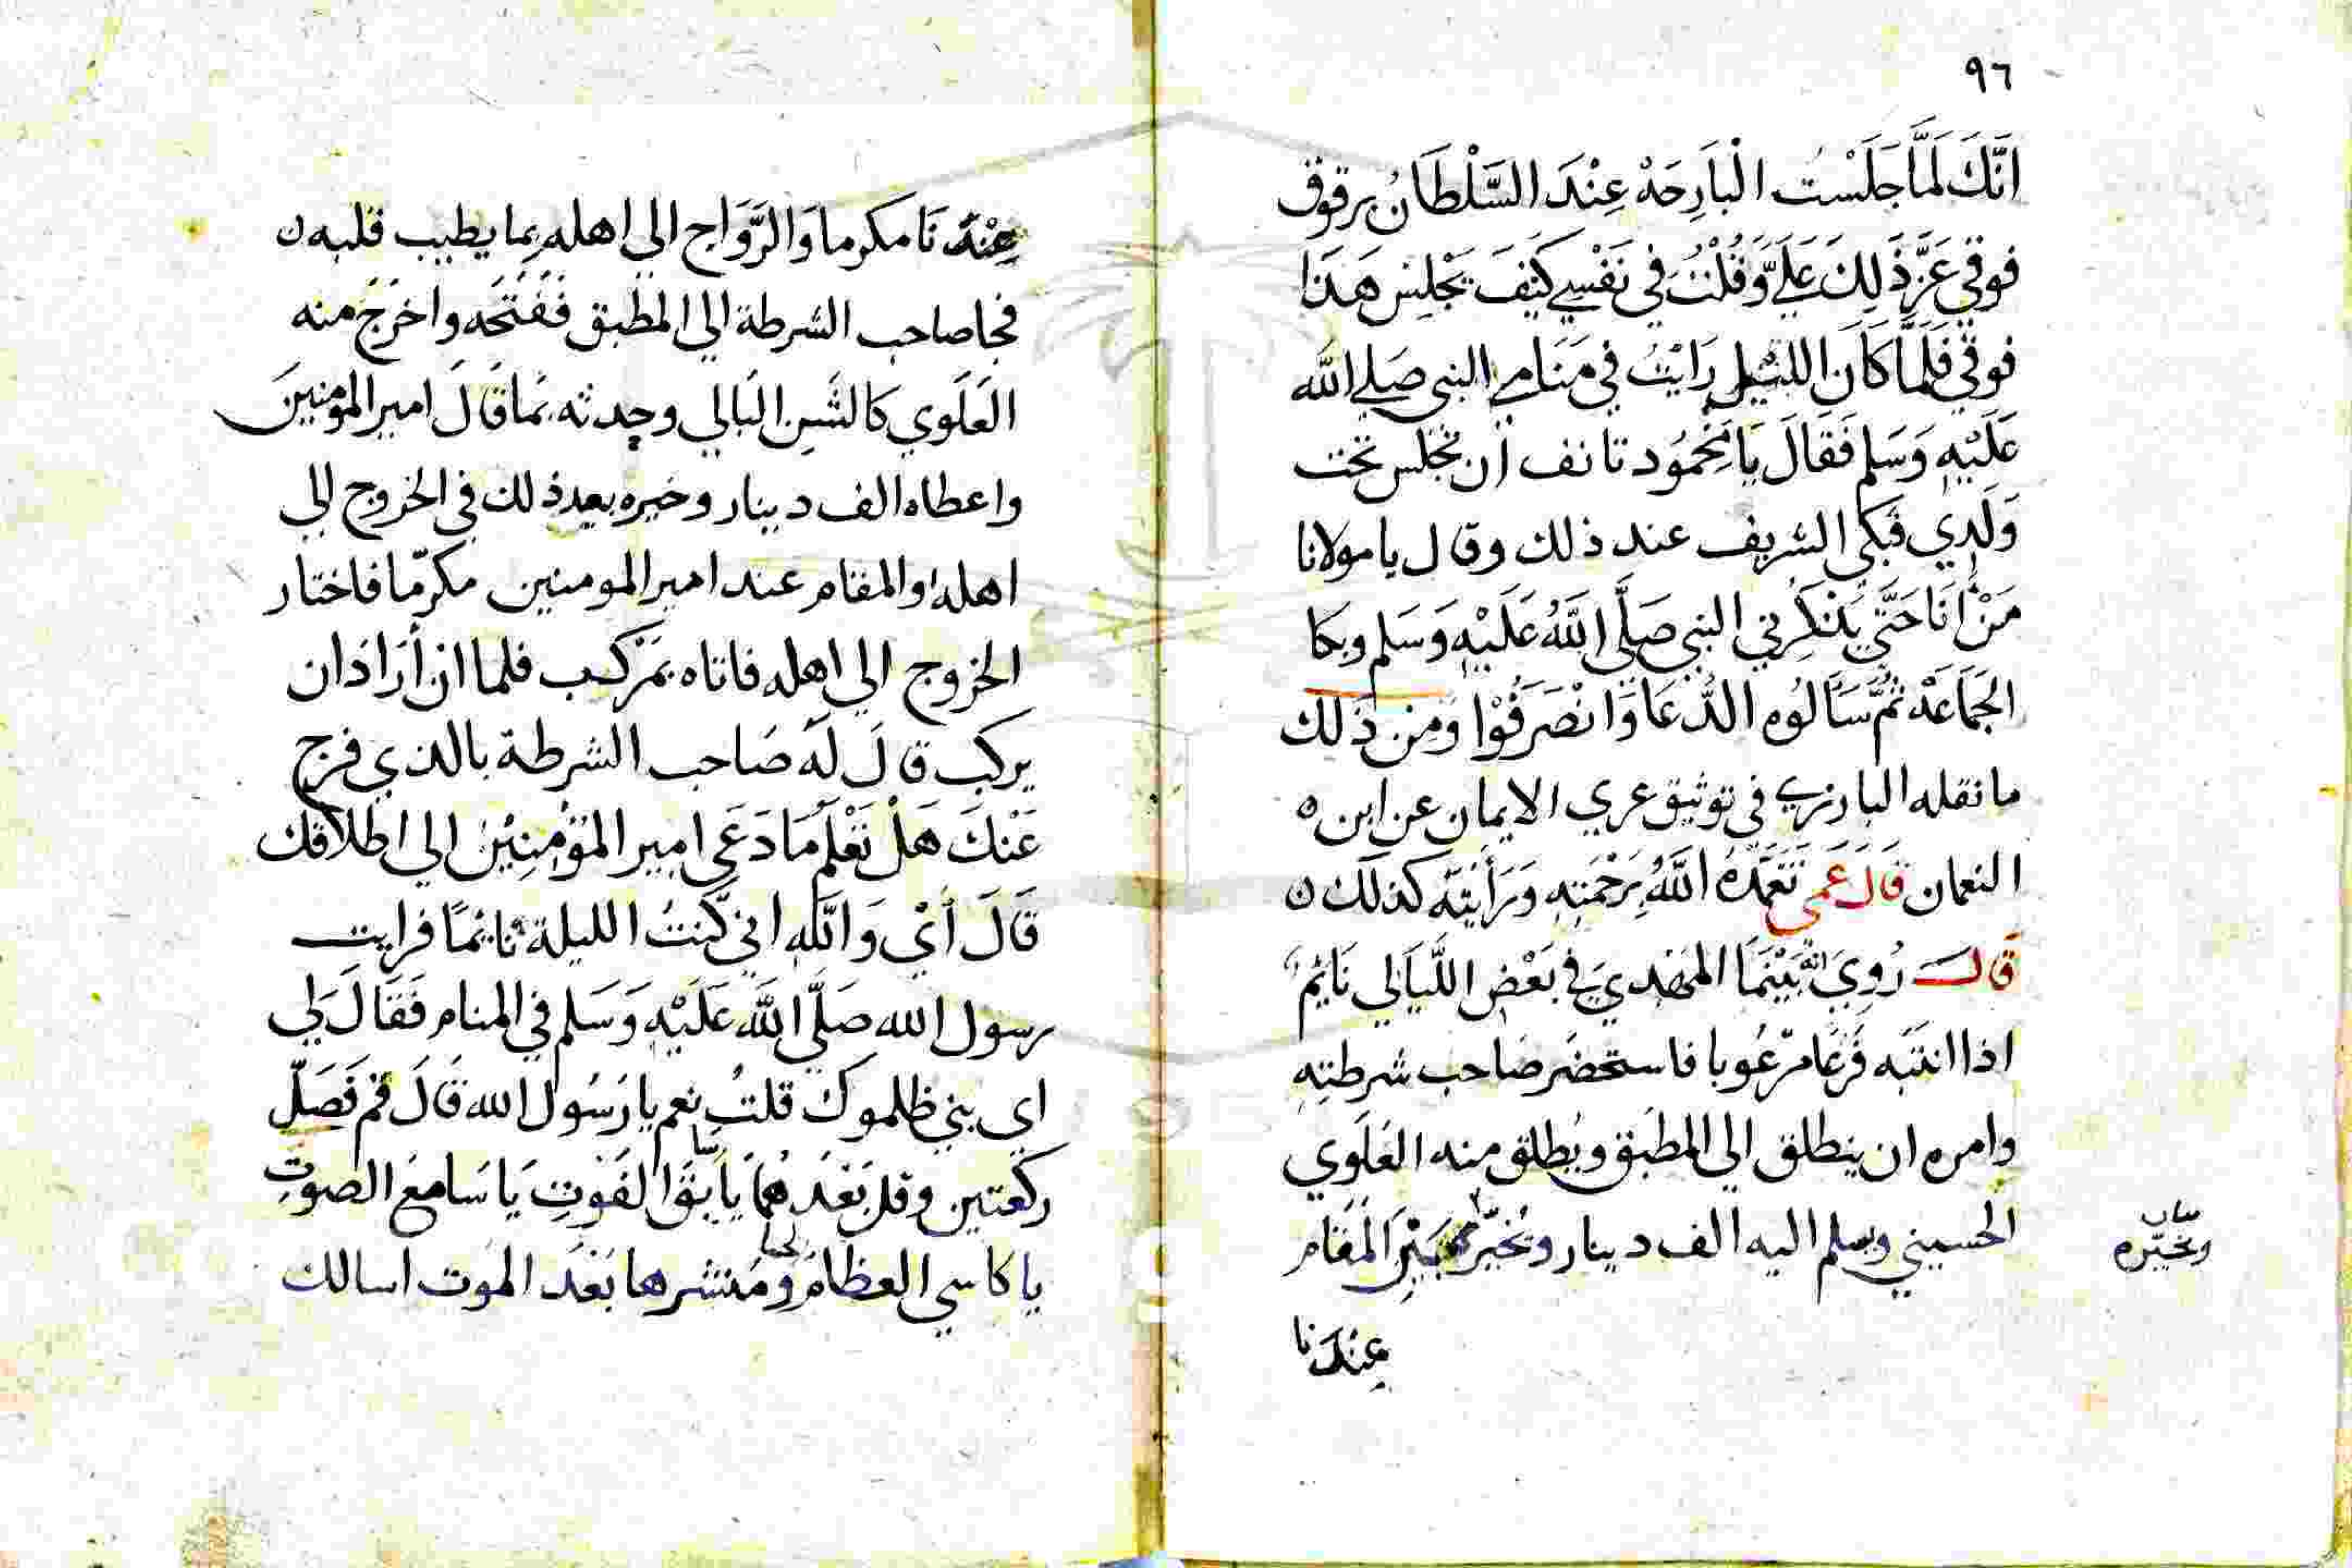 ٩٦
اَنَّكَ لَمَّا جَلَسْتَ الْبَارِحَةْ عِنْدَ السَّلْطَان برقوق
فوقي عَزَّ ذَلِكَ عَلَيَّ وَقُلْتُ في نَفْسِي كَيْفَ يَجْلِسْ هَذَا
فوقي فَلَمَّا كَانَ الليْل رَايْتُ في مَنَامي النبي صَلى الله
عَلَيْهِ وَسَلم فَقَالَ يَا مَحْمُود تانف ان تجلس تحت
وَلَدِي فَبَكى الشريف عند ذلك وقال يا مولانا
مَنْ اَنَا حَتَّى يَذْكِرْني النبي صَلَّى اللَّهُ عَلَيْهِ وَسَلم وبكا
الجَمَاعَة ثُمَّ سَاَلُوه الدُّعَا وَانْصَرَفُوْا وَمِن ذَلك
ما نقله البارزي في توثيق عري الايمان عن ابن
النعمان قَالَ عَمي تَغَمَّدَهُ اللَّهُ بِرَحْمَتِهِ وَرَأَيْتُه كذلك
قالَ رُوِيَ انه بَيْنَمَا المَهْدِيَ في بَعْض اللَّيَالي نَايمٌ
اذا انتَبَه فَزعًا مرْعُوبا فاستحضَر صَاحب شرطتِهِ
وامره ان ينطلق الى المطبَق ويُطلق منه العَلَوي
الحسيني ويسلم اليه الف دينار ويُخَيّر بَيْن المُقَام
ويخيّره
عِنْدَنا
عِنْدَنَا مكرما وَالرَّوَاج الى اهله بما يطيب قلبه
فجا صاحب الشرطة الى المطبق فَفَتَحَه واخرَجَ منه
العَلَوي كالشَنِ البَالي وحدثه بمَا قَالَ امير المؤمنينَ
واعطاه الف دينار وخيره بعد ذلك في الخروج الى
اهله او المقام عند امير المومنين مكرمّا فاختار
الخروج الى اهله فاتاه بمَرْكب فلما ان أرَادَ ان
يركب قالَ لَه صَاحب الشرطة بالذي فرج
عَنْكَ هَلْ تَعْلَم مَا دَعَى امير المؤمنِيْن الى اطلاقك
قَالَ أيْ وَاللَّهِ اني كنتُ الليلة نايمًا فرايت
رسول الله صَلَّى اللَّه عَلَيْهِ وَسَلم في المنام فَقَالَ لي
اي بني ظلموك قلتُ نعم يا رَسُول الله قَالَ قم فَصَلّ
ركعتين وقل بَعْدَهُمَا يا سَابقَ الفَوْتِ يَا سَامعَ الصَوتِ
يا كاسي العظام لحما ومُنشرها بَعْدَ المَوت اسالك